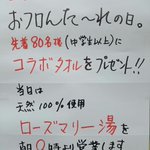 おフロんた〜れの日。
先着80名様(中学生以上)に
コラボタオルをプレゼント!!
当日は
天然100%使用
ローズマリー湯を
朝9時より営業します